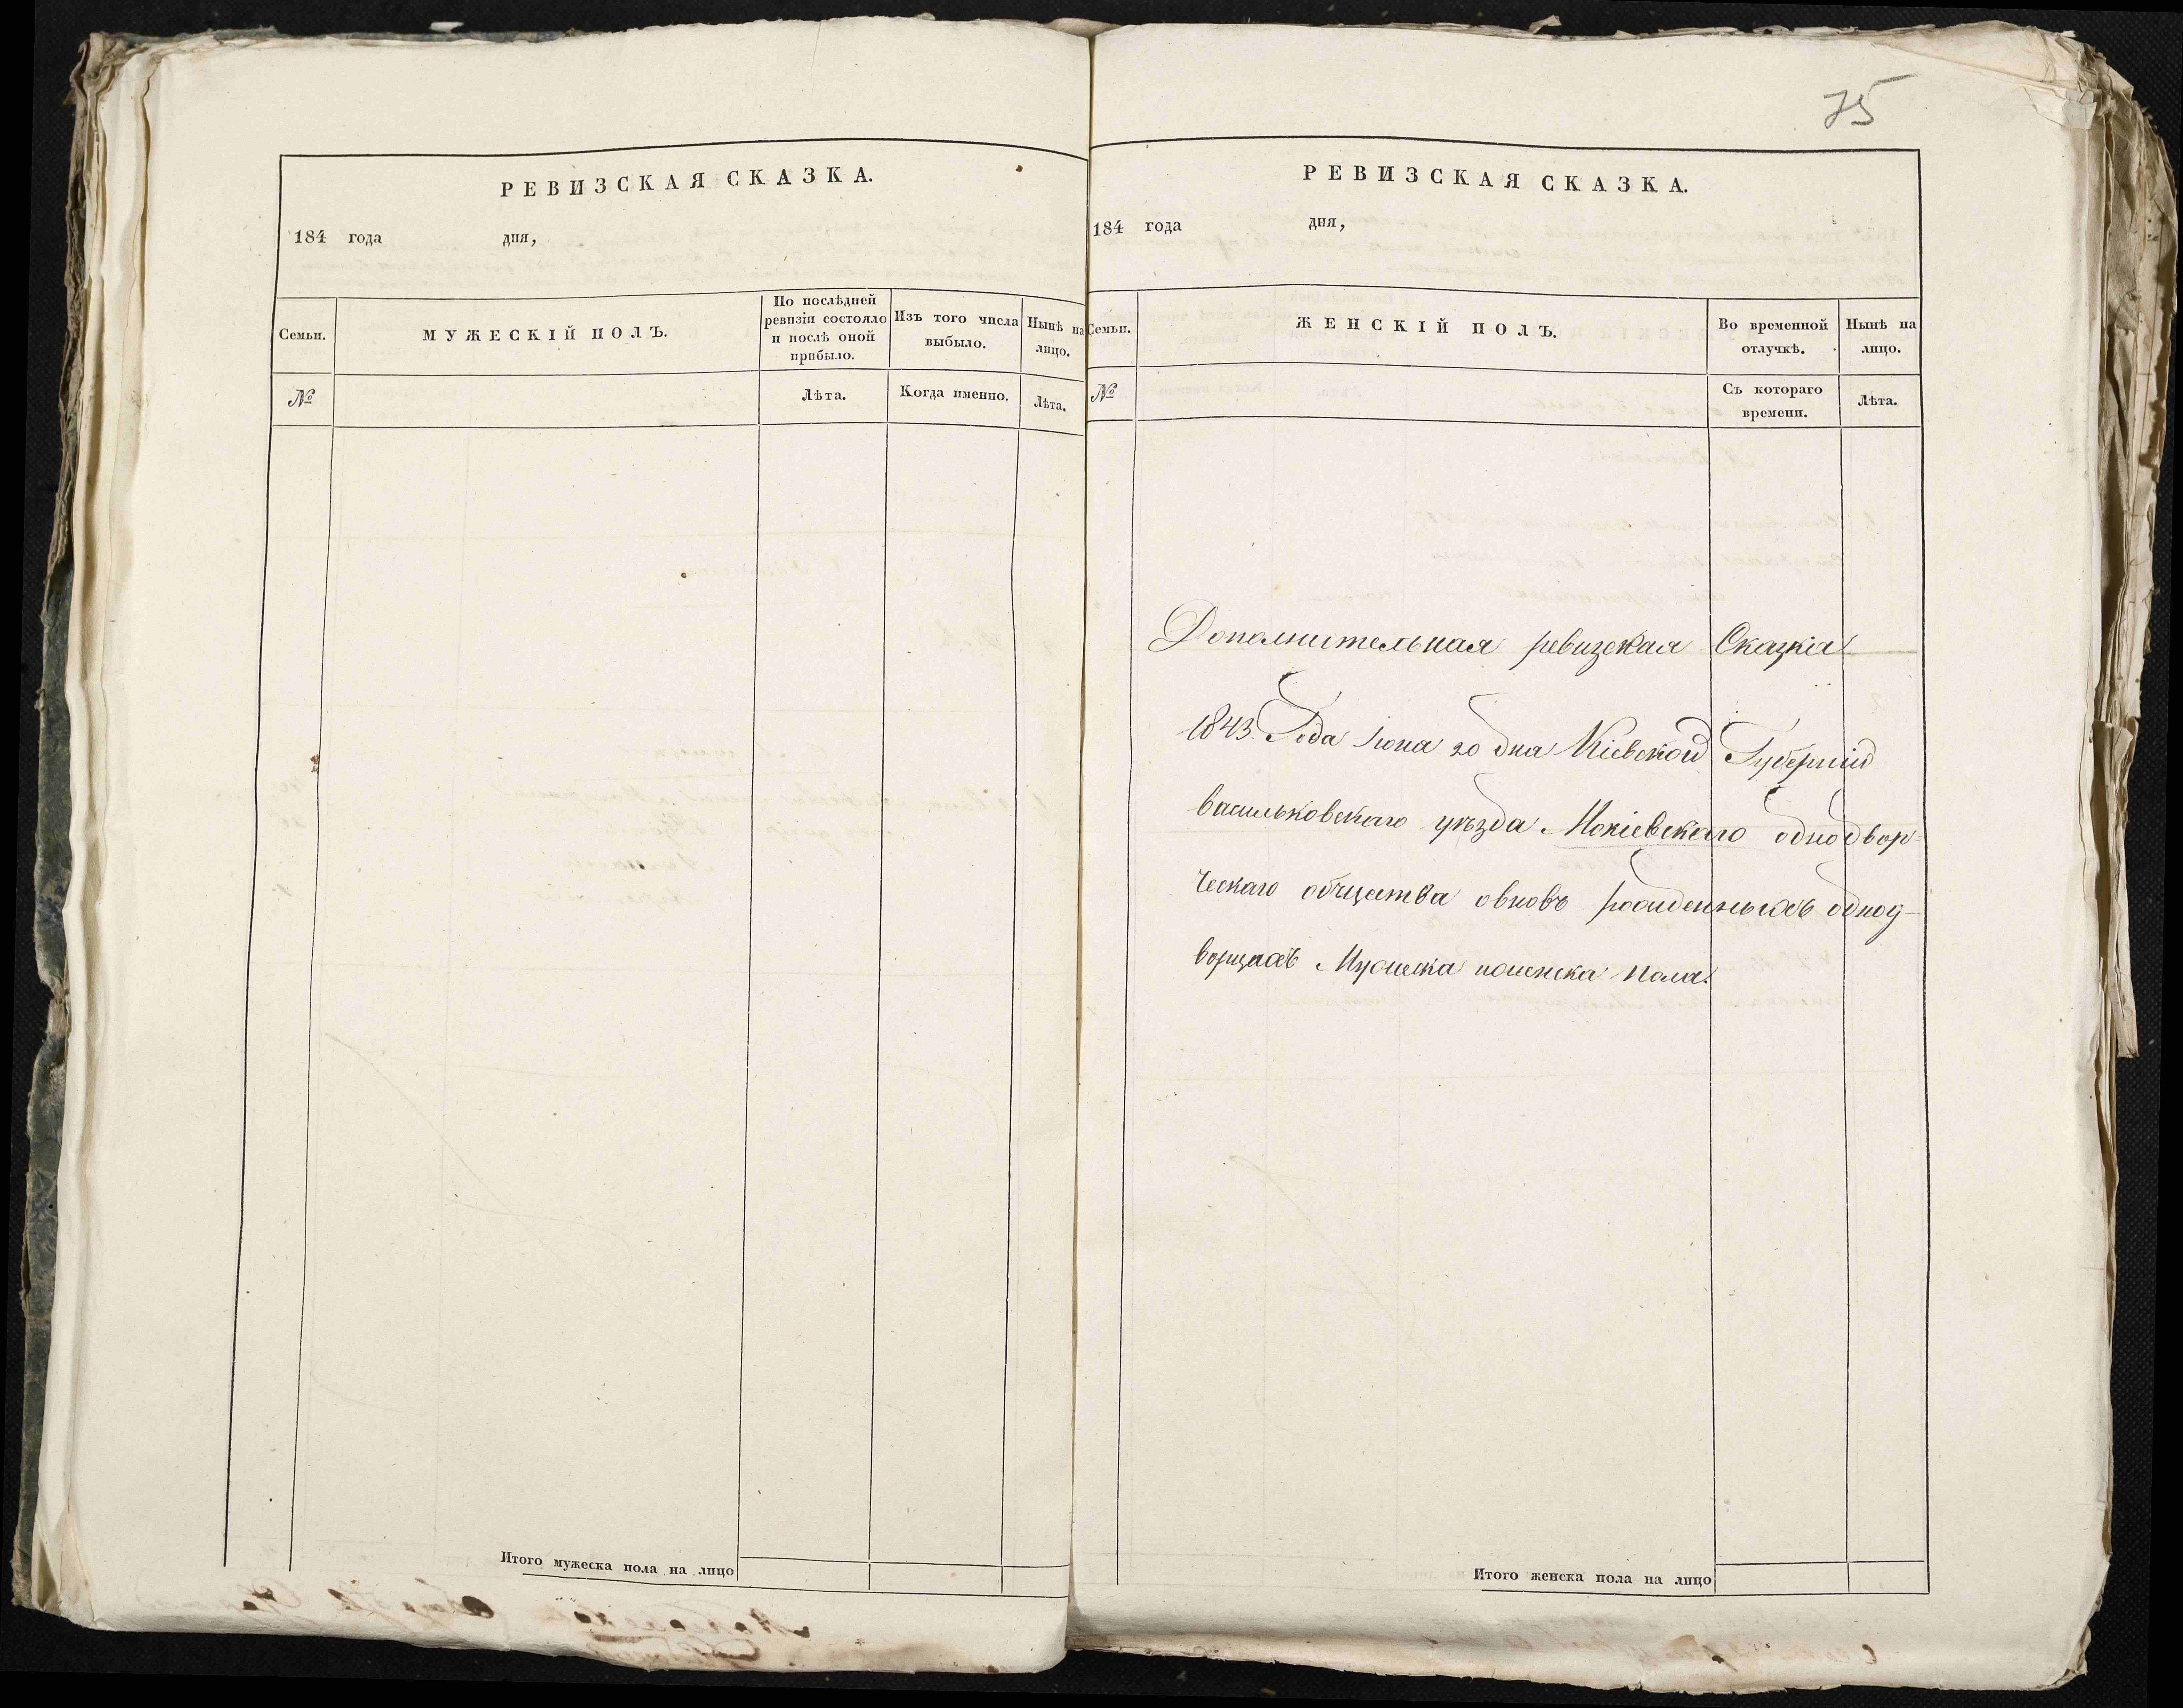 РЕВИЗСКАЯ СКАЗКА.
184 года дня,
Семьи.
МУЖЕСКІЙ ПОЛЪ.
По послѣдней
ревизіи состояло
и послѣ оной
прибыло.
Изъ того числа
выбыло.
Нынѣ на
лицо.
№
Лѣта.
Когда именно.
Лѣта.
Итого мужеска пола на лицо
75
РЕВИЗСКАЯ СКАЗКА.
184 года дня,
Семьи.
ЖЕНСКІЙ ПОЛЪ.
Во временной
отлучкѣ.
Нынѣ на
лицо.
№
Съ котораго
времени.
Лѣта.
Дополнительная ревизская Сказка
1843. Года Іюна 20 дна Кіевской Губерніи
васильковскаго уѣзда Мокіевскаго однодвор-
ческаго общества овновь рожденныхъ однод-
ворцахъ Мужеска иженска пола.
Итого женска пола на лицо